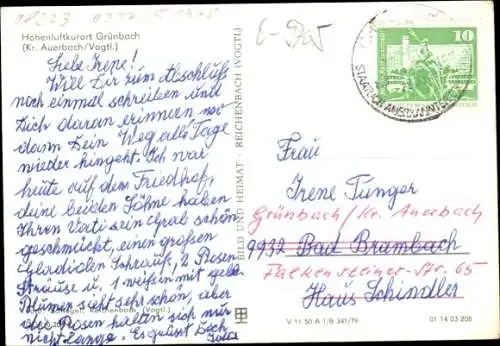 Höhenluftkurort Grünbach
(Kr. Auerbach/Vogtl.)
Liebe Irene!
Will Dir zum Abschluß
noch einmal schreiben und
Dich daran erinnern wo
dann Dein Weg alle Tage
wieder hingeht. Ich war
heute auf dem Friedhof,
deine beiden Söhne haben
Ihren Vati sein Grab schön
geschmückt, einen großen
Gladiolen Strauß, 2 Rosen
Sträuse u. 1 weißen mit gelb
Blumen sieht sehr schön, aber
die Rosen halten sich nur
nicht lange. Es grüsst Dich
BILD UND HEIMAT · REICHENBACH (VOGTL)
10
Frau
Irene Tünger
Grünbach/Kr. Auerbach
9932 Bad Brambach
Falkensteiner-Str. 65
Haus Schindler
V 11 50 A 1/B 341/79
01 14 03 206